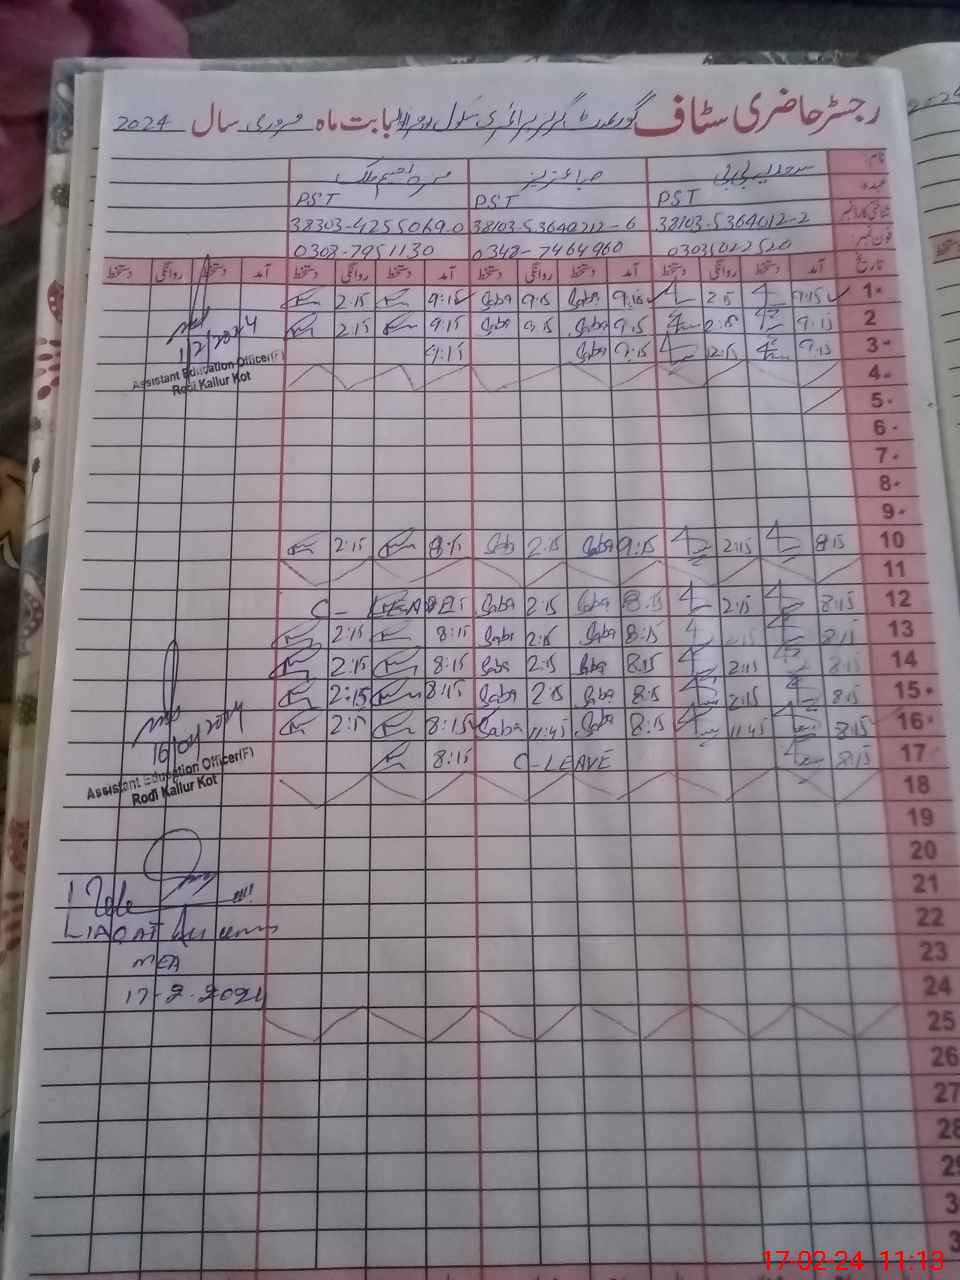 رجسٹر حاضری سٹاف گورنمنٹ گرلز پرائمری سکول بابت ماہ فروری سال 2024
نام:
عہدہ PST PST PST
شناختی کارڈ نمبر 38103-5364012-2 38103-53640212-6 38303-4255069-0
فون نمبر: 03035022520 0348-7464960 0308-7951130
تاریخ آمد دستخط روانگی دستخط آمد دستخط روانگی دستخط آمد دستخط روانگی دستخط آمد دستخط روانگی دستخط
1 9:15 2:15 9:15 Saba 9:15 Saba 9:15 2:15
2 9:15 2:15 9:15 Saba 9:15 Saba 9:15 2:15
3 9:15 12:15 9:15 Saba 9:15
4
5
6
7
8
9
10 8:15 2:15 9:15 Saba 2:15 Saba 8:15 2:15
11
12 8:15 2:15 8:15 Saba 2:15 Saba C-LEAVE
13 8:15 2:15 8:15 Saba 2:15 Saba 8:15 2:15
14 8:15 2:15 8:15 Saba 2:15 Saba 8:15 2:15
15 8:15 2:15 8:15 Saba 2:15 Saba 8:15 2:15
16 8:15 11:45 8:15 Saba 11:45 Saba 8:15 2:15
17 8:15 C-LEAVE 8:15
18
19
20
21
22
23
24
25
26
27
28
29
3
3
1/2/2024
Assistant Education Officer(F)
Rodi Kallur Kot
Assistant Education Officer(F)
Rodi Kallur Kot
LIAQAT
MEA
17-2-2024
2024
17-02-24 11:13